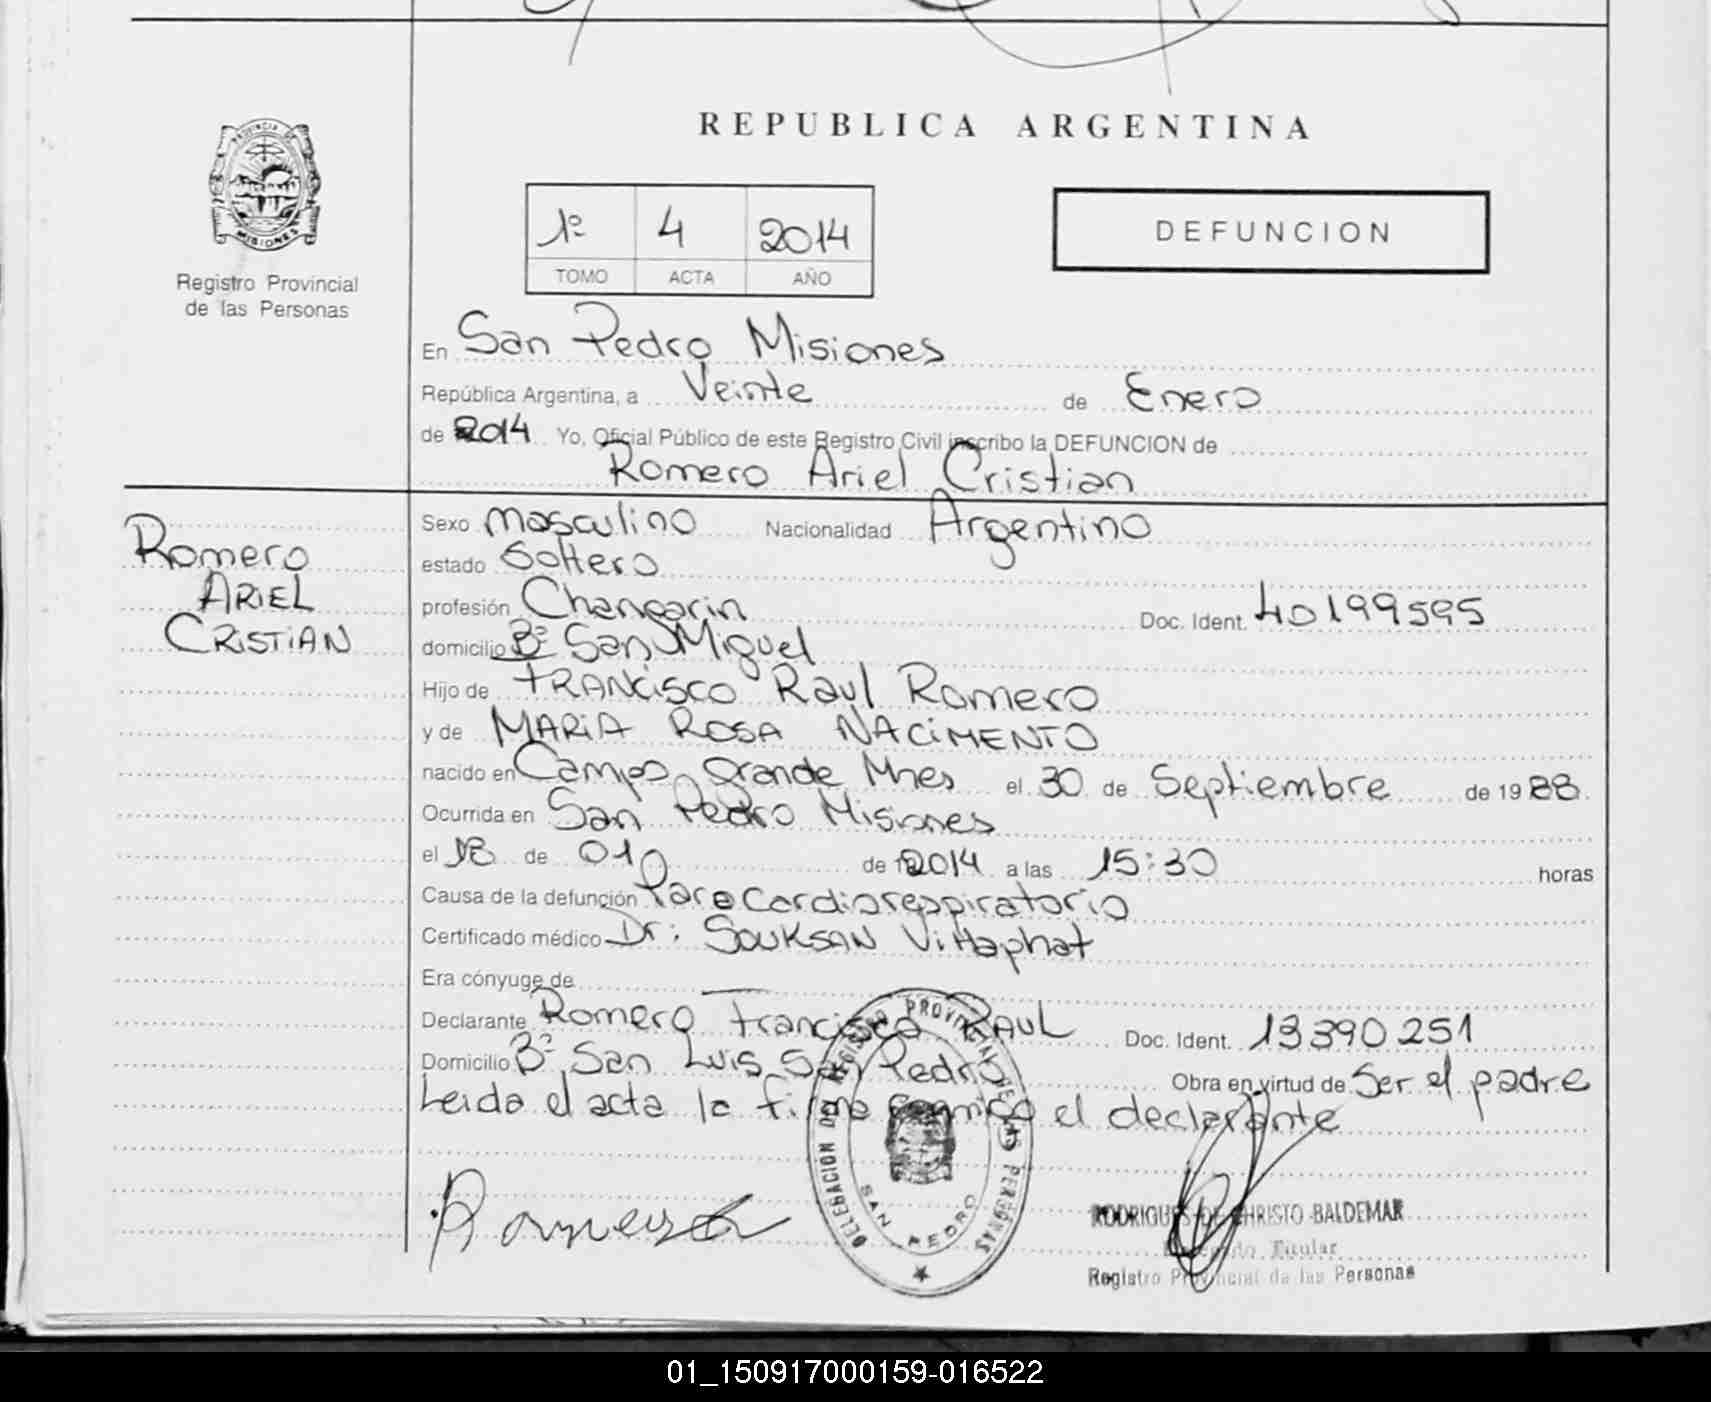 REPUBLICA ARGENTINA
PROVINCIA DE
MISIONES
Registro Provincial
de las Personas
1º 4 2014
TOMO ACTA AÑO
DEFUNCION
En San Pedro Misiones
República Argentina, a Veinte de Enero
de 2014 Yo, Oficial Público de este Registro Civil inscribo la DEFUNCION de
Romero Ariel Cristian
Romero
ARIEL
CRISTIAN
Sexo Masculino Nacionalidad Argentino
estado Soltero
profesión Changarin Doc. Ident. 40199595
domicilio Bº San Miguel
Hijo de FRANCISCO Raul Romero
y de MARIA ROSA NACIMENTO
nacido en Campo Grande Mnes el 30 de Septiembre de 1988
Ocurrida en San Pedro Misiones
el 18 de 01 de 2014 a las 15:30 horas
Causa de la defunción Paro Cardiorespiratorio
Certificado médico Dr: SOUKSAN Vittaphat
Era cónyuge de
Declarante Romero Francisco RAUL Doc. Ident. 13390251
Domicilio Bº San Luis San Pedro Obra en virtud de Ser el padre
Leida el acta la firma conmigo el declarante
DELEGACION DEL REGISTRO PROVINCIAL DE LAS PERSONAS
SAN PEDRO
Romero
RODRIGUES DE CHRISTO BALDEMAR
Delegado Titular
Registro Provincial de las Personas
01_150917000159-016522